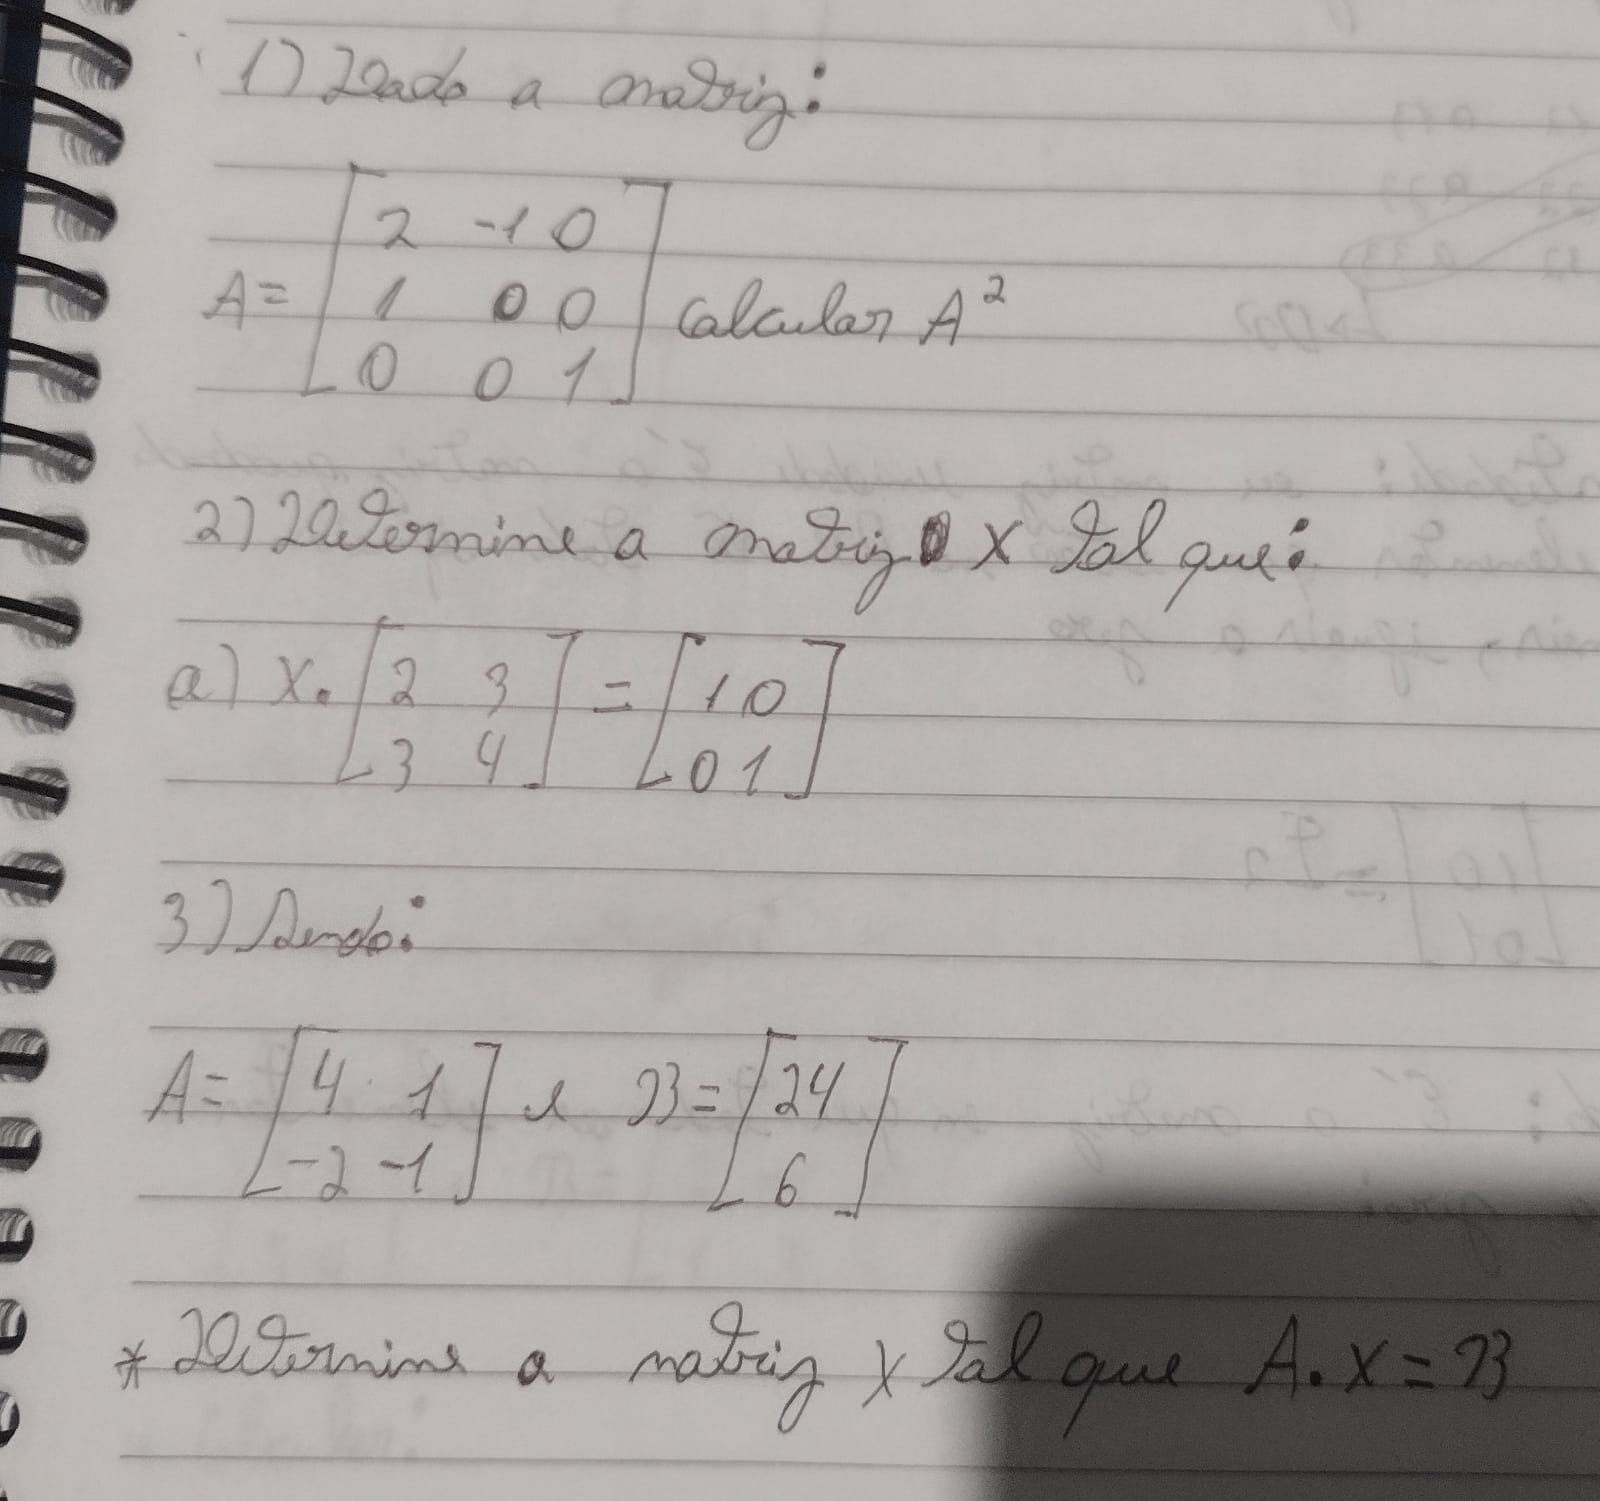 1) Dado a matriz:
A = [2 -1 0
1 0 0
0 0 1] calcular A²
2) Determine a matriz X tal que:
a) X. [2 3
3 4] = [1 0
0 1]
3) Sendo:
A = [4 1
-2 -1] e B = [24
6]
* Determine a matriz X tal que A.X = B